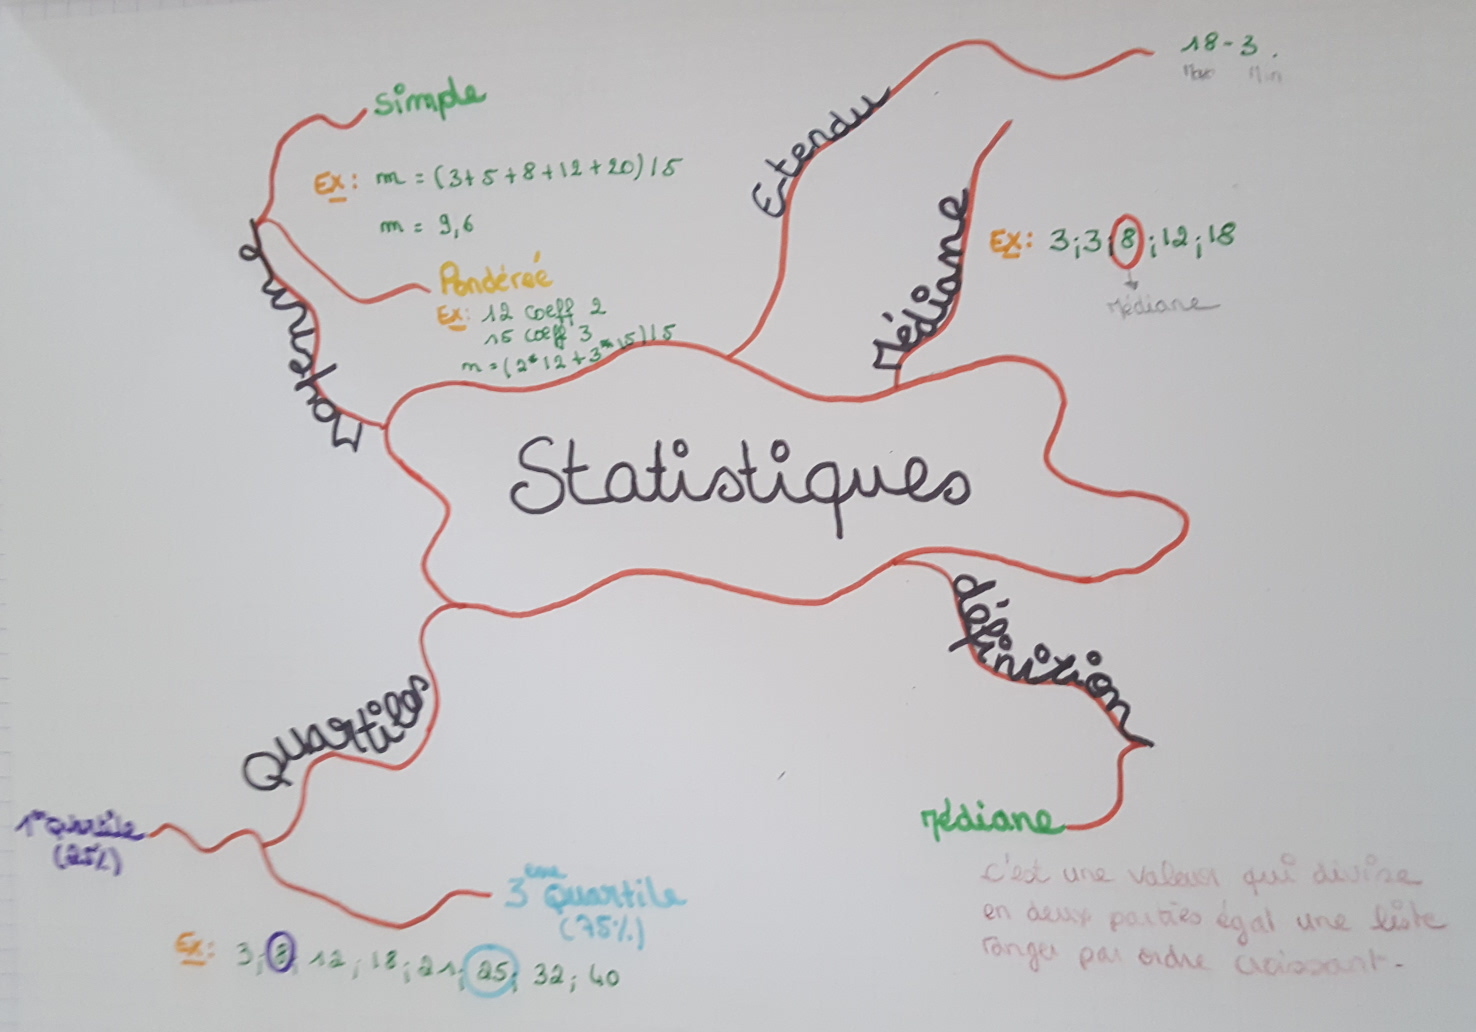 Simple
Ex: m = (3+5+8+12+20)/5
m = 9,6
Pondéreé
Ex: 12 coeff 2
15 coeff 3
m = (2*12+3*15)/5
Moyenne
E-tendu
18-3.
Max Min
Médiane
Ex: 3;3;8;12;18
Médiane
Statistiques
définition
Médiane
c'est une valeur qui divise
en deux parties égal une liste
ranger par ordre croissant.
Quartiles
1er quartile
(25%)
3ème Quartile
(75%)
Ex: 3;8;12;18;21;25;32;40